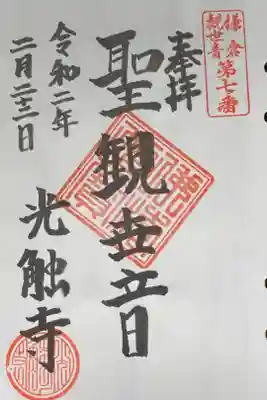 鎌倉
観世音
第七番
奉拝
聖観世音
光触寺
令和二年
二月二十三日